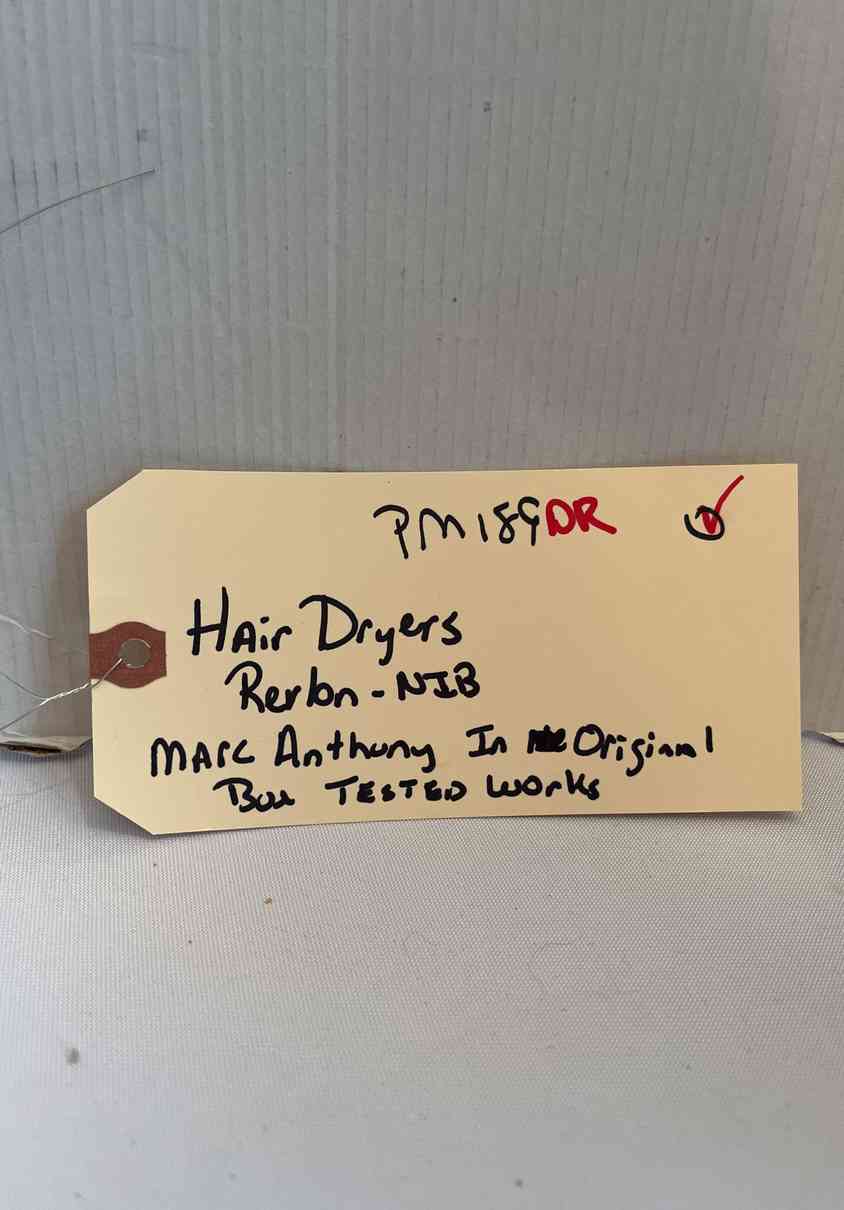 PM189DR
HAir Dryers
Rerbn - NIB
MARC Anthony In Original
Box TESTED Works